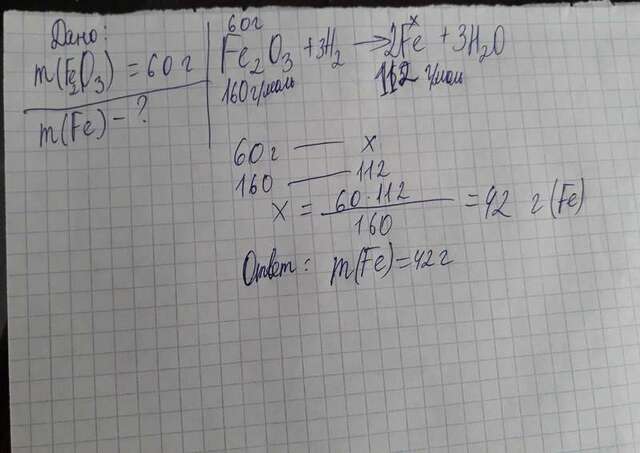 Дано:
m(Fe2O3) = 60 г
m(Fe) - ?
60г x
Fe2O3 + 3H2 → 2Fe + 3H2O
160г/моль 112 г/моль
60г — x
160 — 112
x = 60·112 / 160 = 42 г (Fe)
Ответ: m(Fe) = 42 г